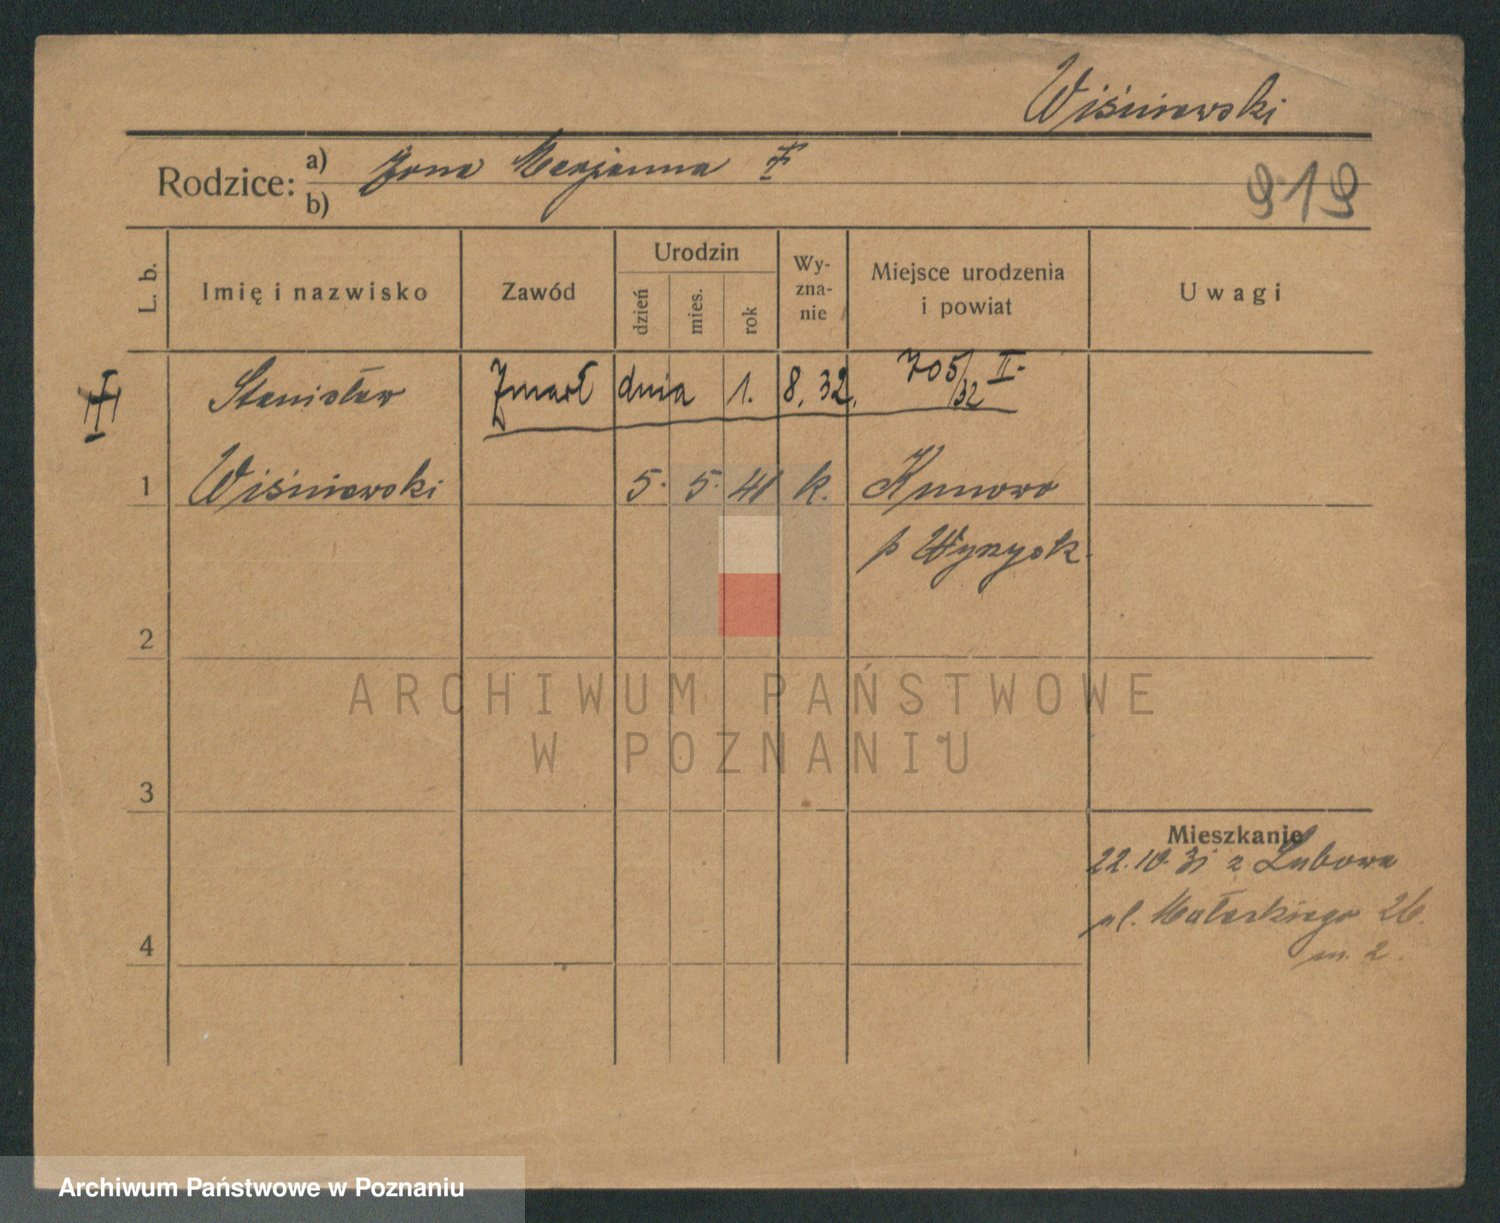 Wiśniewski
Rodzice: a) Żona Marjanna
b)
919
L. b. Imię i nazwisko Zawód Urodzin dzień mies. rok Wy-zna-nie Miejsce urodzenia i powiat Uwagi
Stanisław Zmarł dnia 1. 8. 32. 705/32 II.
1 Wiśniewski 5. 5. 41 k. Kunowo
p Wyrzysk.
2
ARCHIWUM PAŃSTWOWE
W POZNANIU
3
Mieszkanie
22.10.31 z Lubowa
4 ul. 26.
m. 2.
Archiwum Państwowe w Poznaniu